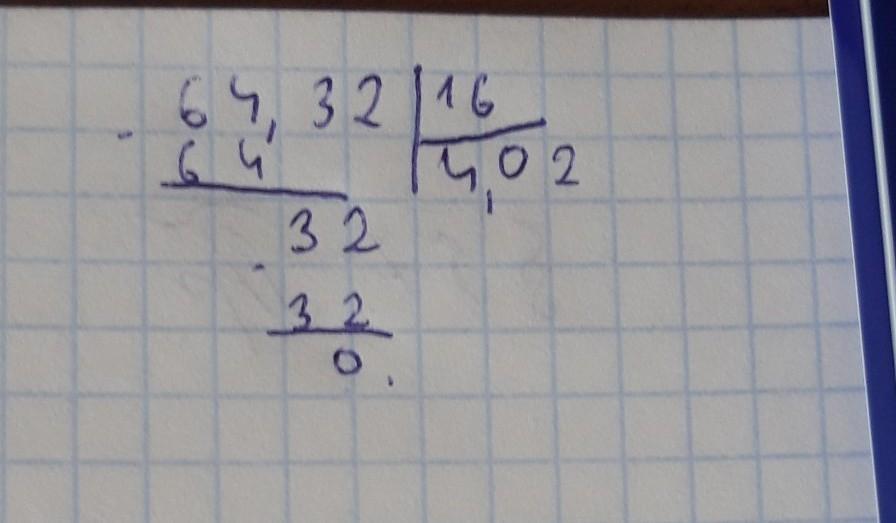 - 64,32 | 16
64 | 4,02
- 32
32
0.